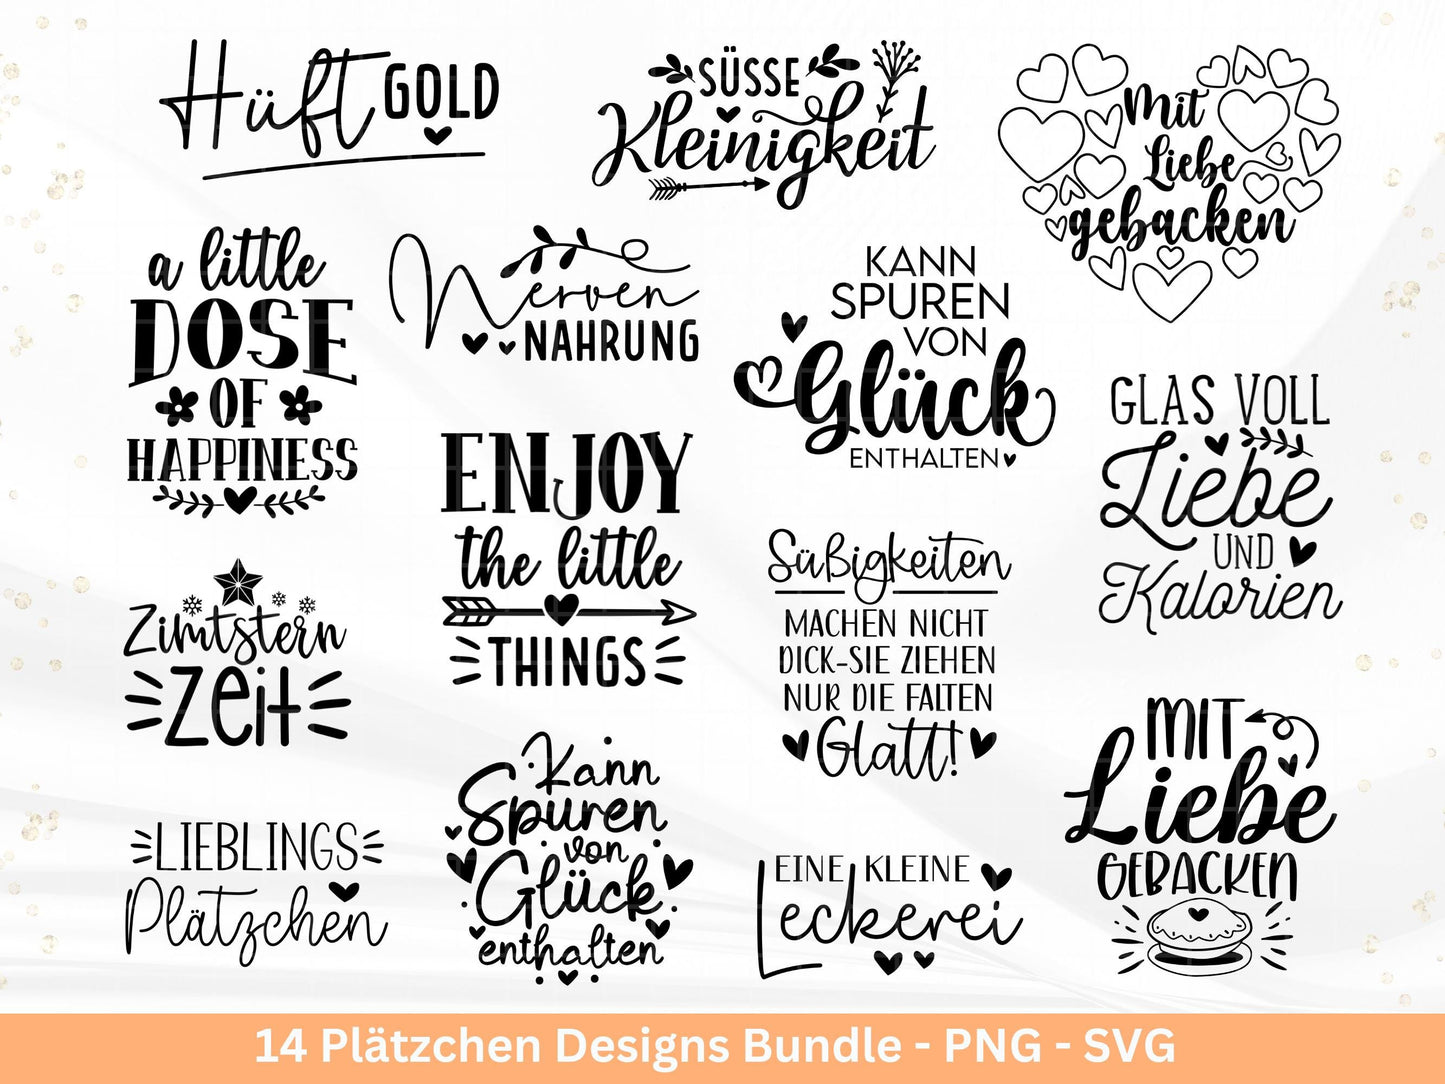 Hüft GOLD
SÜSSE
Kleinigkeit
Mit
Liebe
gebacken
a little
DOSE
OF
HAPPINESS
Nerven
NAHRUNG
KANN
SPUREN
VON
Glück
ENTHALTEN
GLAS VOLL
Liebe
UND
Kalorien
ENJOY
the little
THINGS
Süßigkeiten
MACHEN NICHT
DICK-SIE ZIEHEN
NUR DIE FALTEN
Glatt!
Zimtstern
Zeit
Kann
Spuren
von
Glück
enthalten
MIT
Liebe
GEBACKEN
LIEBLINGS
Plätzchen
EINE KLEINE
Leckerei
14 Plätzchen Designs Bundle - PNG - SVG